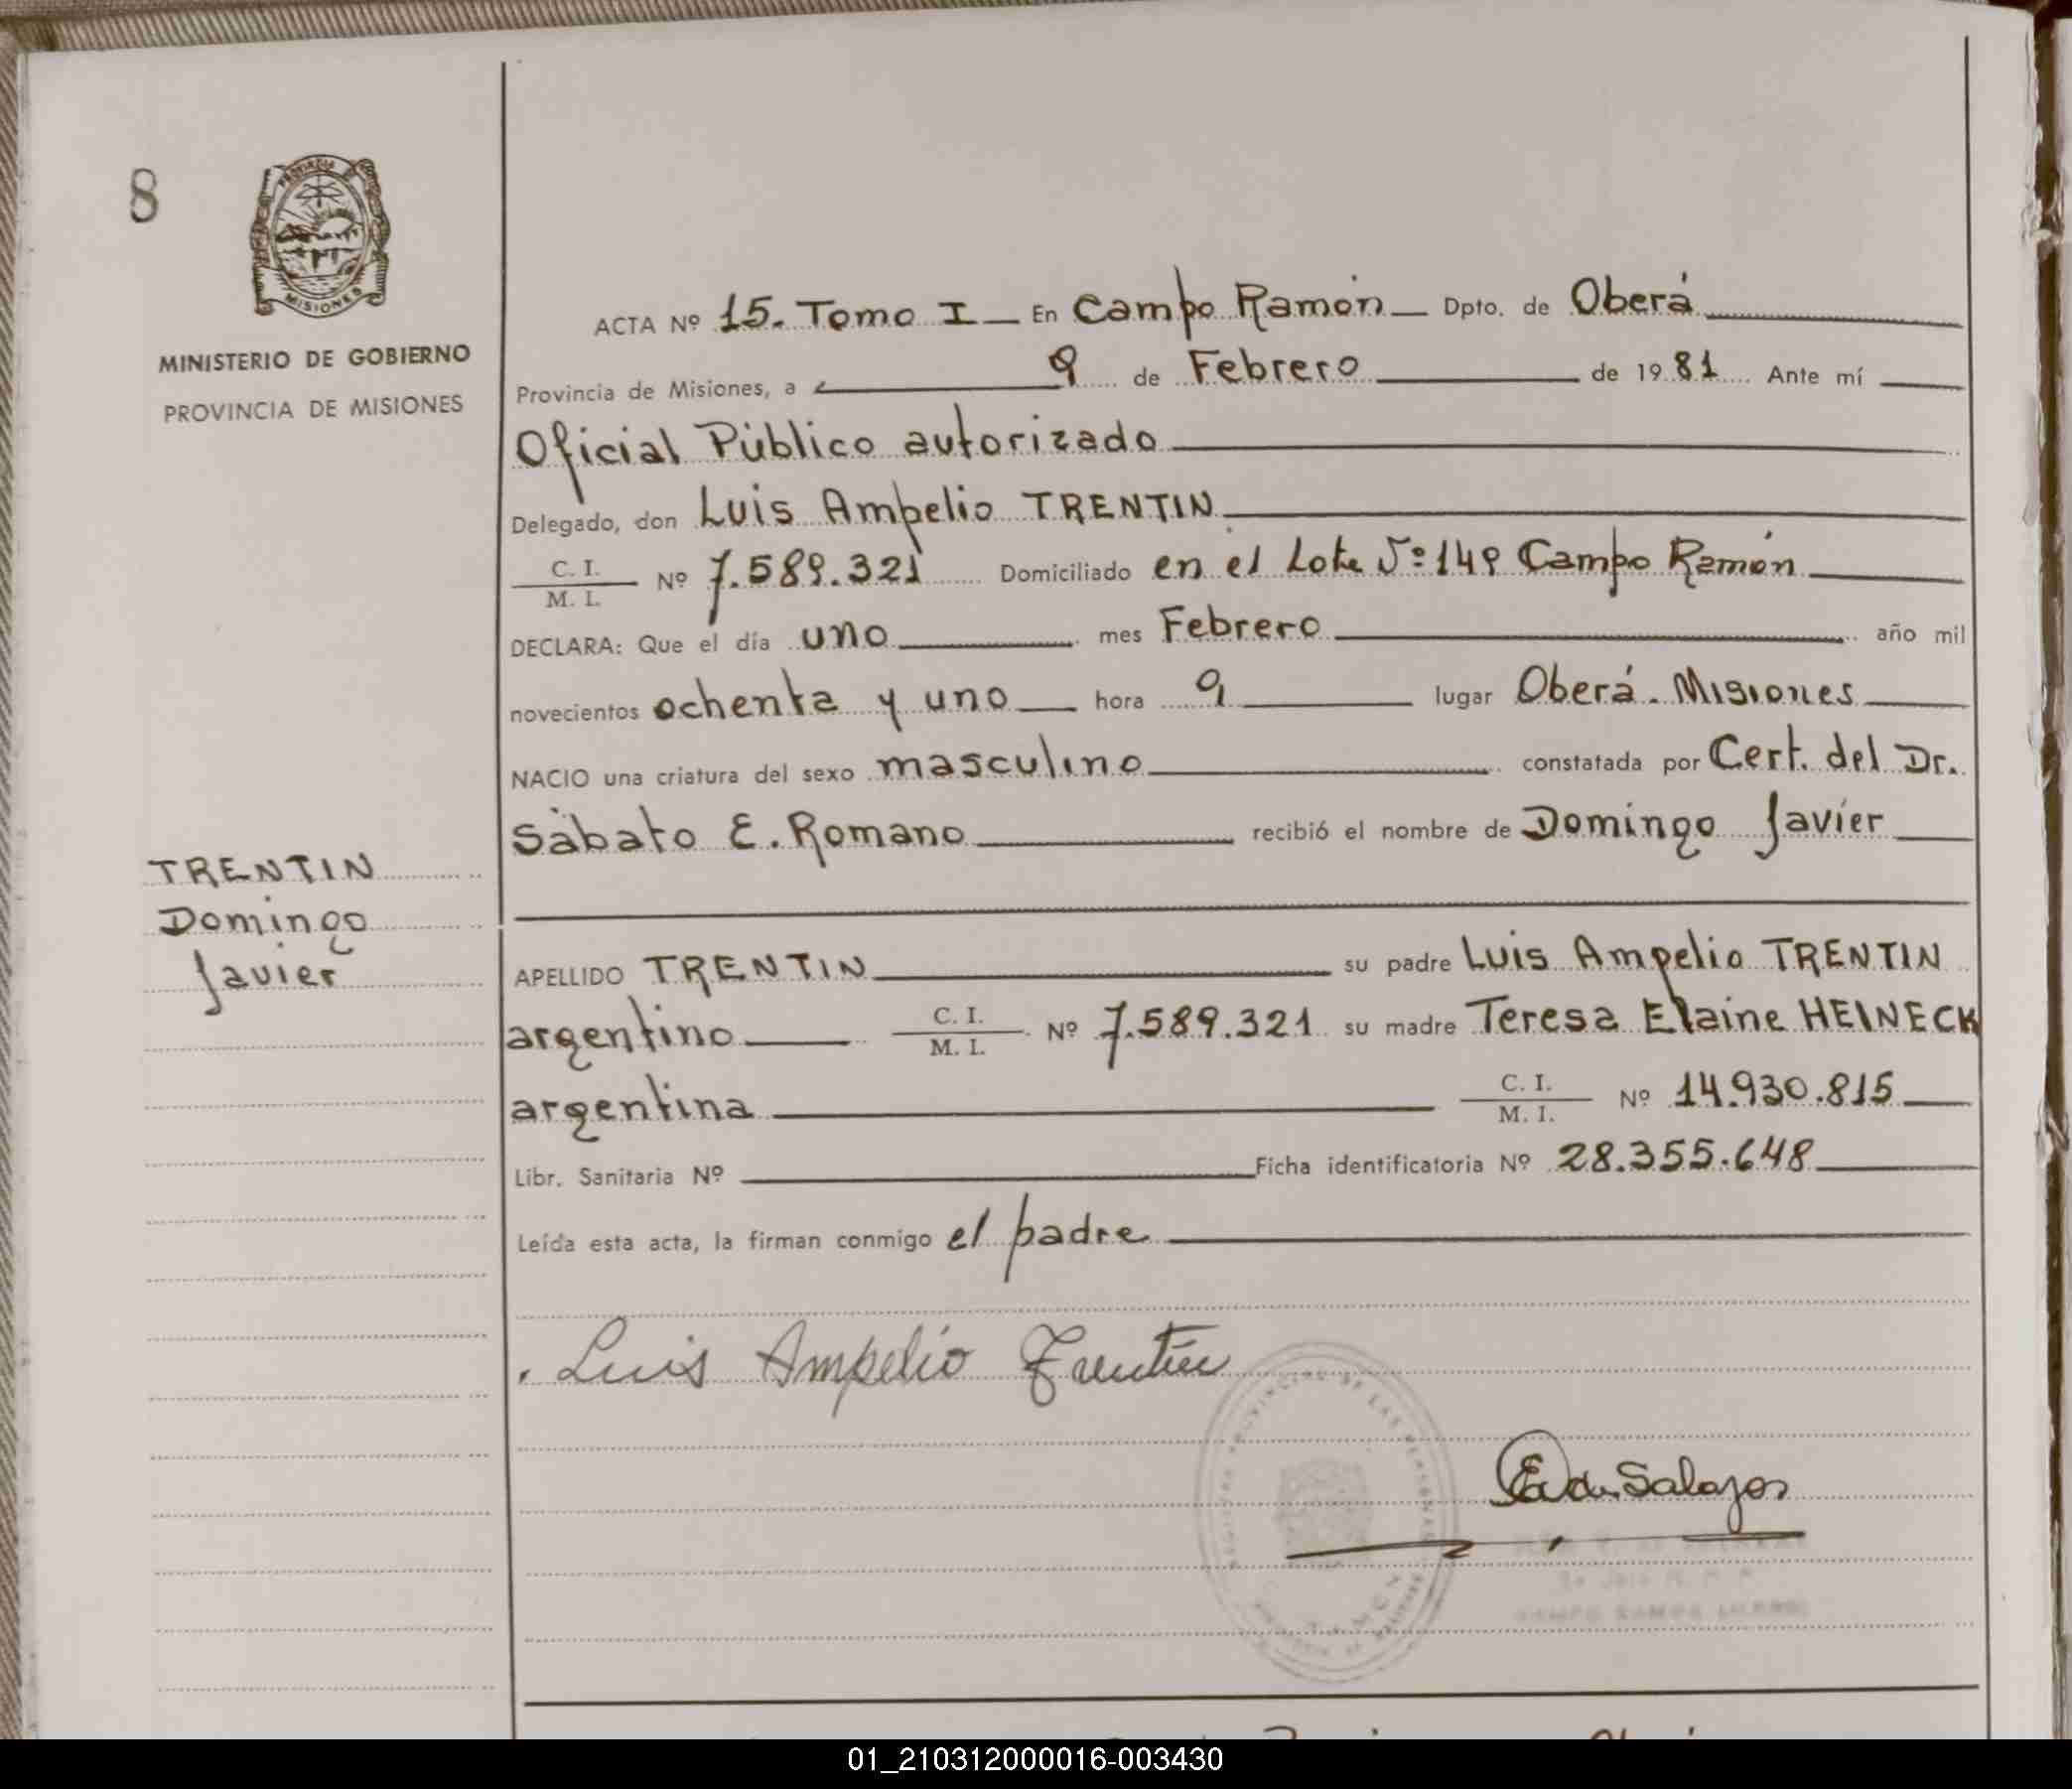 8
MISIONES
MINISTERIO DE GOBIERNO
PROVINCIA DE MISIONES
TRENTIN
Domingo
Javier
ACTA Nº 15. Tomo I En Campo Ramón Dpto. de Oberá
Provincia de Misiones, a 9 de Febrero de 1981 Ante mí
Oficial Público autorizado
Delegado, don Luis Ampelio TRENTIN
C. I. / M. I. Nº 7.589.321 Domiciliado en el Lote Nº 149 Campo Ramón
DECLARA: Que el día uno mes Febrero año mil
novecientos ochenta y uno hora 9 lugar Oberá. Misiones
NACIO una criatura del sexo masculino constatada por Cert. del Dr.
Sábato E. Romano recibió el nombre de Domingo Javier
APELLIDO TRENTIN su padre Luis Ampelio TRENTIN
argentino C. I. / M. I. Nº 7.589.321 su madre Teresa Elaine HEINECK
argentina C. I. / M. I. Nº 14.930.815
Libr. Sanitaria Nº Ficha identificatoria Nº 28.355.648
Leída esta acta, la firman conmigo el padre
Luis Ampelio Trentin
01_210312000016-003430